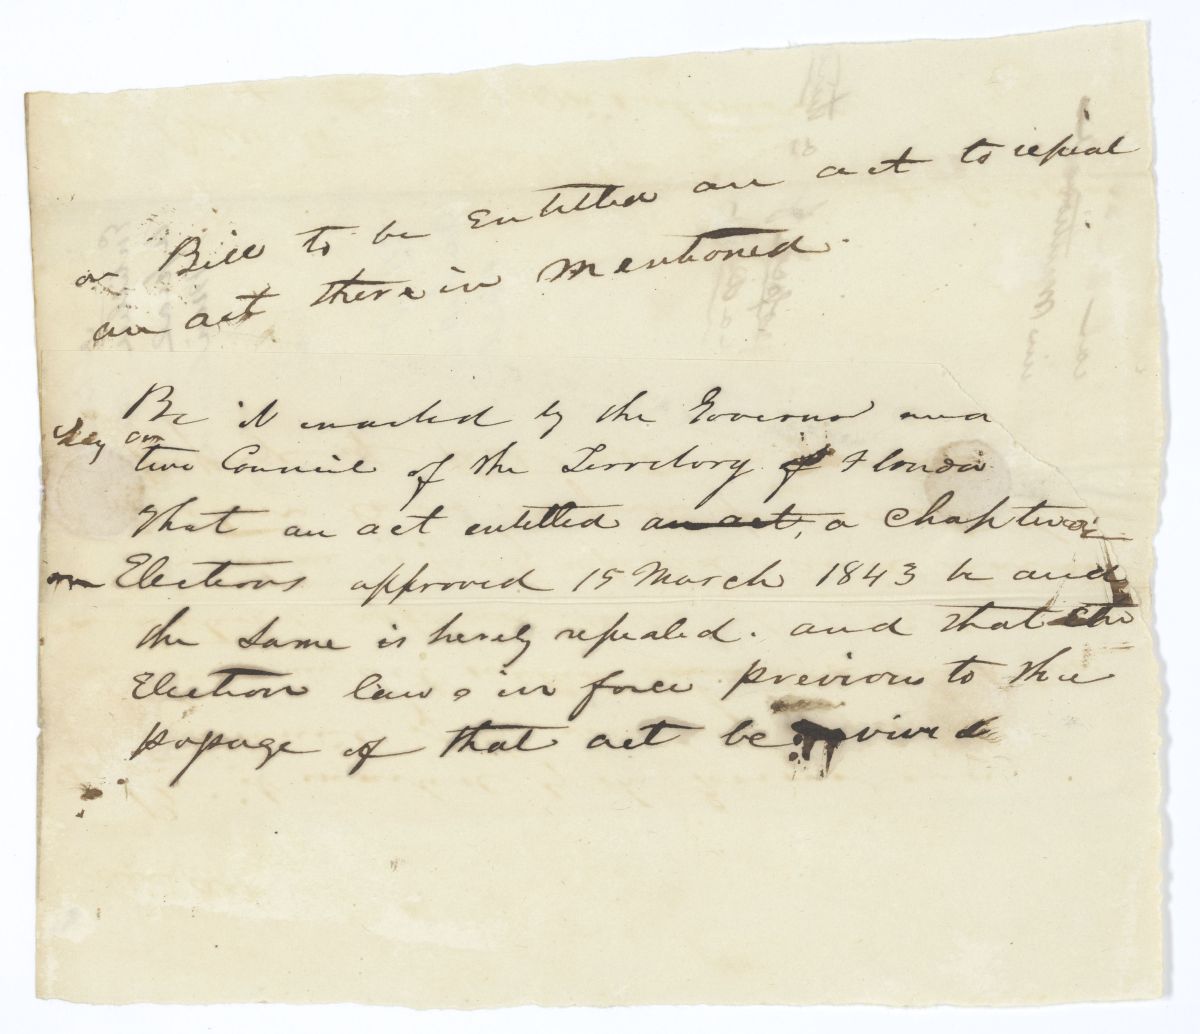 a Bill to be Entitled an act to repeal
an act therein mentioned.
Be it enacted by the Governor and
Legislative Council of the Territory of Florida
That an act entitled an act, a Chapter
Elections approved 15 March 1843 be and
the same is hereby repealed. and that the
Election laws in force previous to the
passage of that act be revived